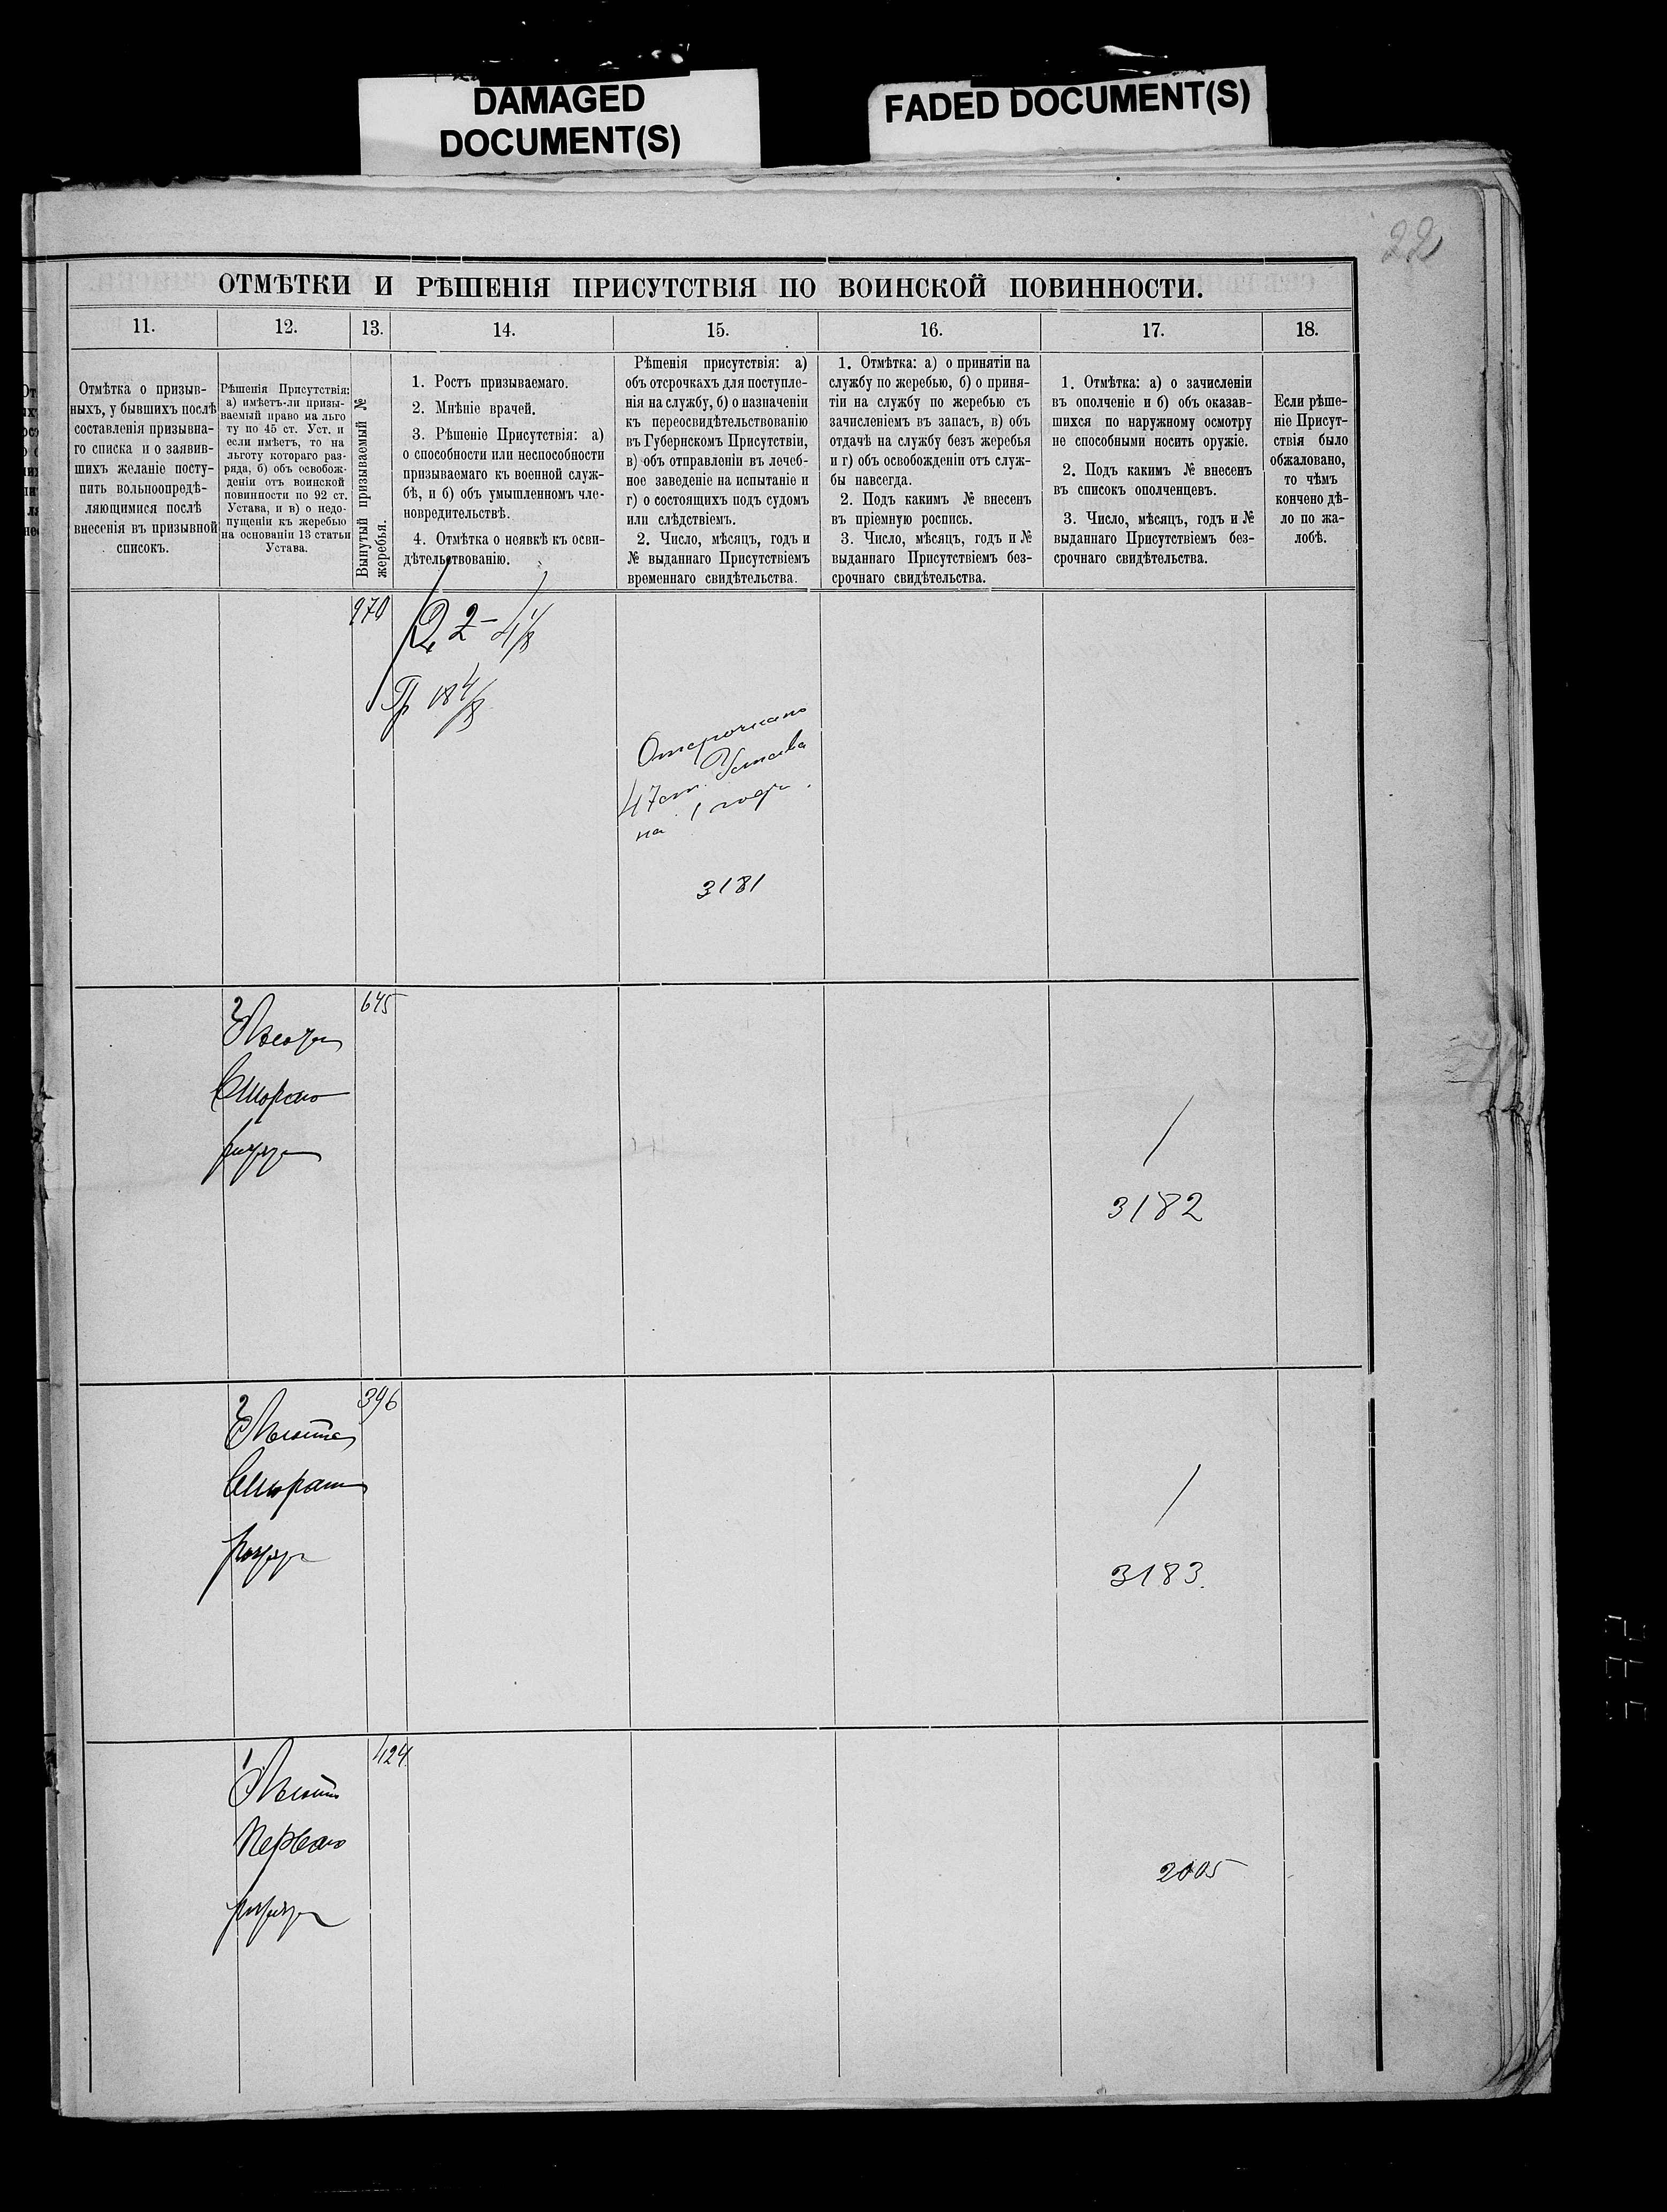 DAMAGED
DOCUMENT(S)
FADED DOCUMENT(S)
22
ОТМѢТКИ И РѢШЕНІЯ ПРИСУТСТВІЯ ПО ВОИНСКОЙ ПОВИННОСТИ.
11.
12.
13.
14.
15.
16.
17.
18.
Отмѣтка о призыв-
ныхъ, у бывшихъ послѣ
составленія призывна-
го списка и о заявив-
шихъ желаніе посту-
пить вольноопредѣ-
ляющимися послѣ
внесенія въ призывной
списокъ.
Рѣшенія Присутствія:
а) имѣетъ-ли призы-
ваемый право на льго
ту по 45 ст. Уст. и
если имѣетъ, то на
льготу котораго раз-
ряда, б) объ освобож-
деніи отъ воинской
повинности по 92 ст.
Устава, и в) о недо-
пущеніи къ жеребью
на основаніи 13 статьи
Устава.
Вынутый призываемый №
жеребья.
1. Ростъ призываемаго.
2. Мнѣніе врачей.
3. Рѣшеніе Присутствія: а)
о способности или неспособности
призываемаго къ военной служ-
бѣ, и б) объ умышленномъ чле-
новредительствѣ.
4. Отмѣтка о неявкѣ къ осви-
дѣтельствованію.
Рѣшенія присутствія: а)
объ отсрочкахъ для поступле-
нія на службу, б) о назначеніи
къ переосвидѣтельствованію
въ Губернскомъ Присутствіи,
в) объ отправленіи въ лечеб-
ное заведеніе на испытаніе и
г) о состоящихъ подъ судомъ
или слѣдствіемъ.
2. Число, мѣсяцъ, годъ и
№ выданнаго Присутствіемъ
временнаго свидѣтельства.
1. Отмѣтка: а) о принятіи на
службу по жеребью, б) о приня-
тіи на службу по жеребью съ
зачисленіемъ въ запасъ, в) объ
отдачѣ на службу безъ жеребья
и г) объ освобожденіи отъ служ-
бы навсегда.
2. Подъ какимъ № внесенъ
въ пріемную роспись.
3. Число, мѣсяцъ, годъ и №
выданнаго Присутствіемъ без-
срочнаго свидѣтельства.
1. Отмѣтка: а) о зачисленіи
въ ополченіе и б) объ оказав-
шихся по наружному осмотру
не способными носить оружіе.
2. Подъ какимъ № внесенъ
въ списокъ ополченцевъ.
3. Число, мѣсяцъ, годъ и №
выданнаго Присутствіемъ без-
срочнаго свидѣтельства.
Если рѣше-
ніе Присут-
ствія было
обжаловано,
то чѣмъ
кончено дѣ-
ло по жа-
лобѣ.
970
2 2-4 1/8
Гр 18 4/8
Отсрочено
47 ст. Устава
на 1 годъ.
3181
2
645
Льгота
Второго
разряда
3182
2
396
Льгота
Второго
разряда
3183.
1
424.
Льгота
Перваго
разряда
2005